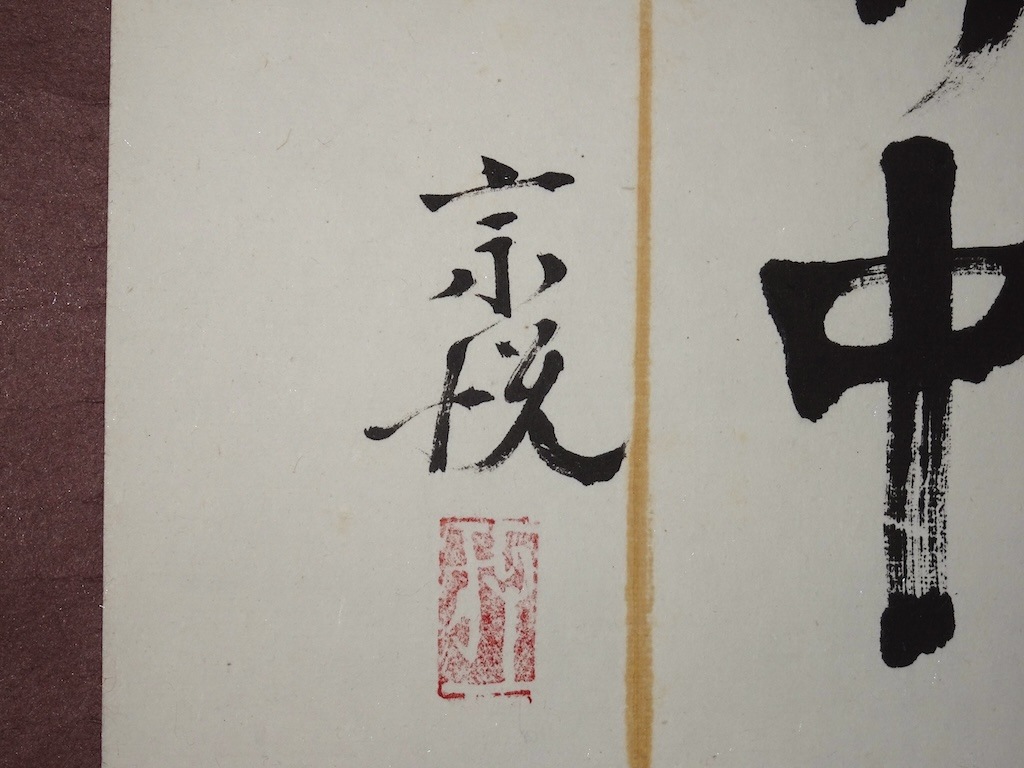 中
宗悦